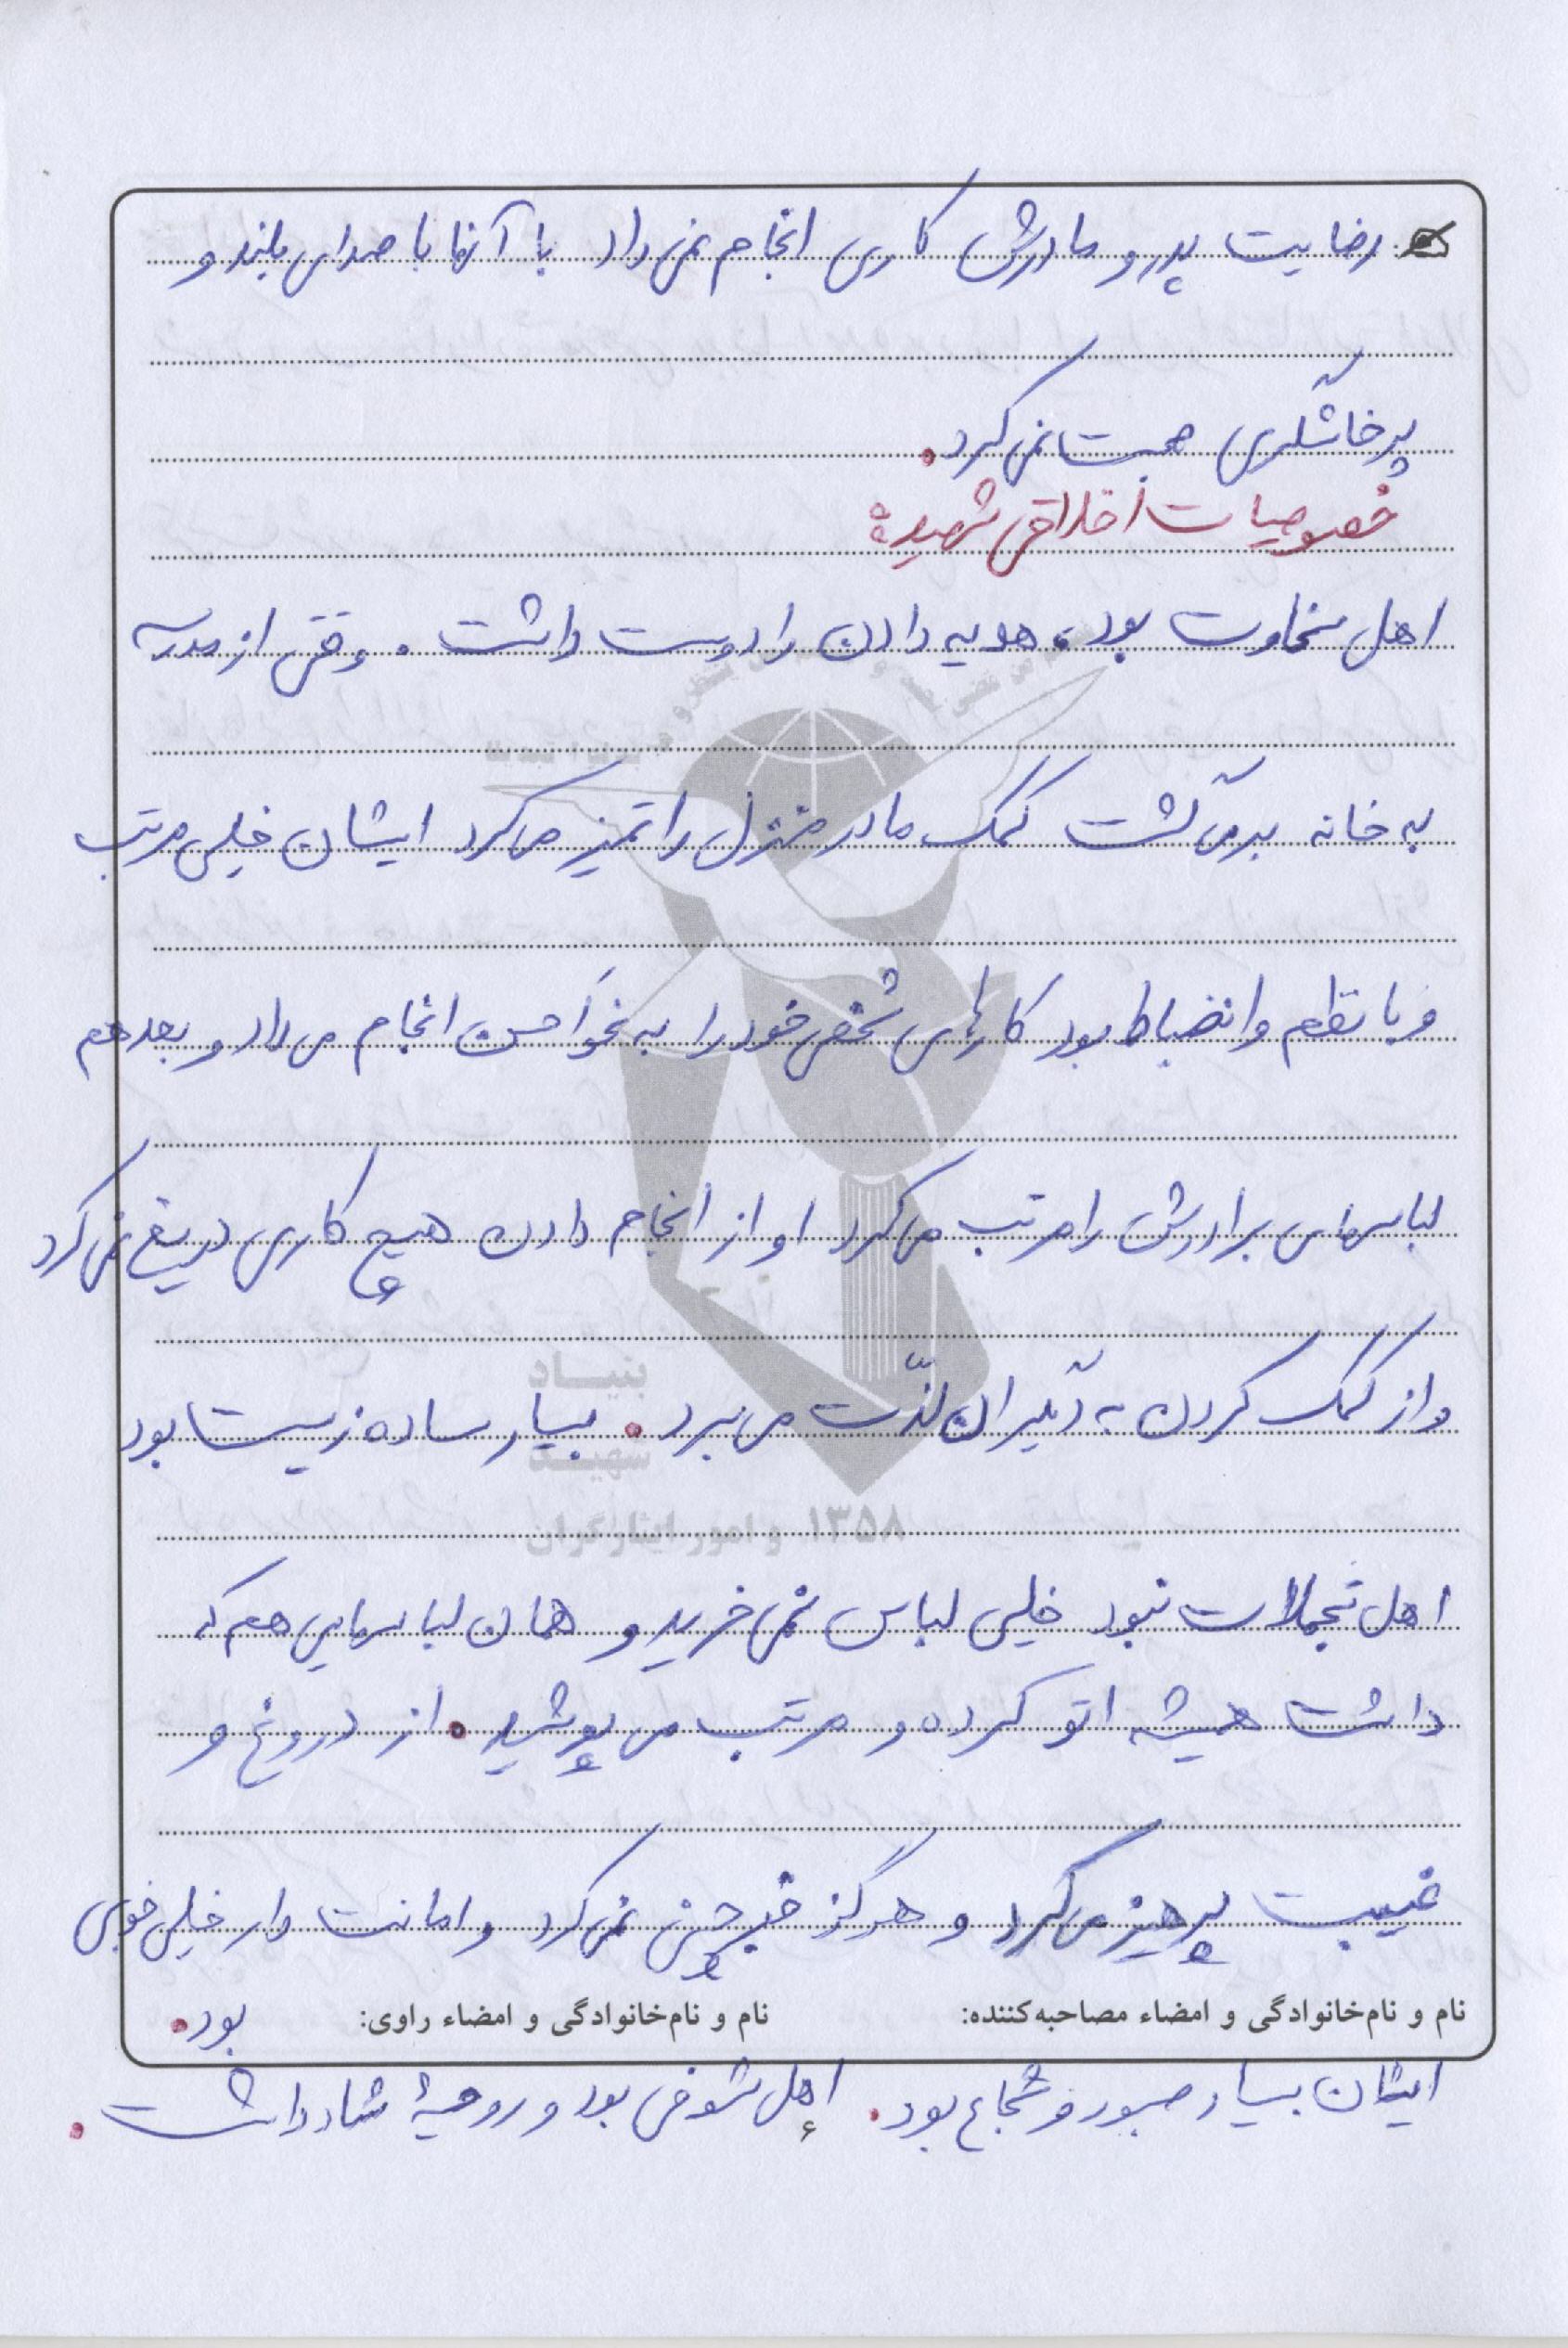 رضایت پدر و مادرش کاری انجام نمی‌داد با آنها با صدای بلند و
پرخاشگری صحبت نمی‌کرد.
خصوصیات اخلاقی شهید:
اهل سخاوت بود، هدیه دادن را دوست داشت. وقتی از مدرسه
به خانه برمی‌گشت کمک مادر منزل را تمیز می‌کرد ایشان خیلی مرتب
و با نظم و انضباط بود کارهای شخصی خود را به نحو احسن انجام می‌داد و بعد هم
لباسهای برادرش را مرتب می‌کرد او از انجام دادن هیچ کاری دریغ نمی‌کرد
و از کمک کردن به دیگران لذّت می‌برد. بسیار ساده زیست بود
بنیاد
شهید
۱۳۵۸ و امور ایثارگران
اهل تجملات نبود خیلی لباس نمی‌خرید و همان لباسهایی هم که
داشت همیشه اتو کرده و مرتب می‌پوشید. از دروغ و
غیبت پرهیز می‌کرد و هرگز خبرچینی نمی‌کرد و امانت دار خیلی خوبی
بود.
نام و نام‌خانوادگی و امضاء مصاحبه‌کننده: نام و نام‌خانوادگی و امضاء راوی:
ایشان بسیار صبور و شجاع بود. اهل شوخی بود و روحیهٔ شاد داشت.